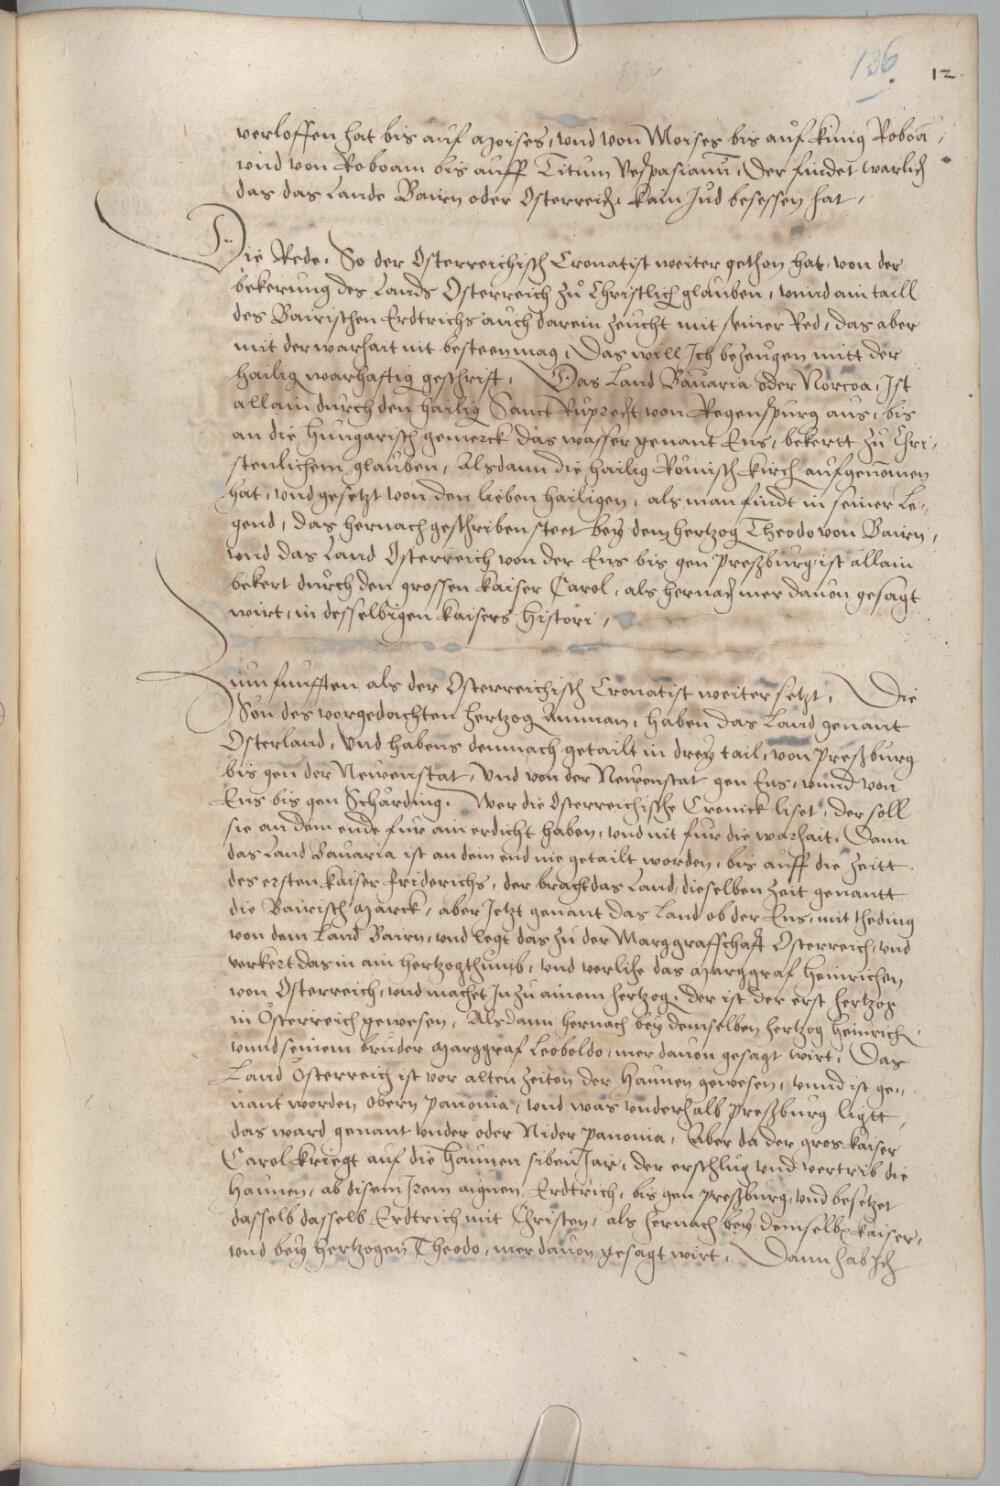 136. 12.
verloffen hat bis auf Moises, vnd von Moises bis auf künig Roboā,
vnd von Roboam bis auff Titum Vespasianū, Der findet warlich
das das Lande Bairn oder Osterreich, kain Jud besessen hat,
Die Rede, So der Osterreichisch Cronatist weiter gethon hat, von der
bekerung des Lands Osterreich zů Christlich glauben, vnnd ain taill
des Bairischen Erdtrichs auch darein zeucht mit seiner Red, das aber
mit der warhait nit besteen mag, Das will Ich bezeugen mitt der
hailig warhafftig geschrift, Das Land Bavaria oder Norcoa, Ist
allain durch den hailig Sanct Ruprecht von Regenspurg aus, bis
an die Hungarisch gemerck das wasser genant Ens, bekertt zů Chri-
stenlichem glauben, Alsdann die hailig Römisch kirch aufgenomen
hat, vnd gesetzt von den lieben hailigen, als man findt in seiner Le-
gend, das hernach geschriben steet bey dem hertzog Theodo von Bairn,
vnd das Land Osterreich von der Ens bis gen Preßburg ist allain
bekert durch den grossen kaiser Carol, als hernach mer dauon gesagt
wirt, in desselbigen kaisers histori,
Zum funfften als der Osterreichisch Cronatist weiter setzt, Die
Sön des vorgedachten hertzog Amman, haben das Land genant
Osterland, Vnd habens demnach getailt in drey tail, von Preßburg
bis gen der Newenstat, Vnd von der Newenstat gen Ens, vnnd von
Ens bis gen Schärding, Wer die Osterreichische Cronick liset, der soll
sie an dem ende für ain erdicht haben, vnd nit für die warhait, Dann
das Land Bavaria ist an dem end nie getailt worden, bis auff die zeitt
des ersten kaiser Friderichs, der bracht das Land, dieselben zeit genantt
die Bairisch Marck, aber Jetzt genant das Land ob der Ens, mit theding
von dem Land Bairn, vnd legt das zů der Marggraffschafft Osterreich, vnd
verkert das in ain hertzogthumb, vnd verlihe das Marggraf Heinrichen
von Osterreich, vnd machet Jn zu ainem hertzog, der ist der erst hertzog
in Österreich gewesen, Alsdann hernach bey demselben hertzog Heinrich
vnnd seinem brüder Marggraf Leoboldo, mer dauon gesagt wirt, Das
Land Österreich ist vor alten zeiten der Haunen gewesen, vnnd ist ge-
nant worden obern Panonia, vnd was vnderhalb Preßburg ligtt,
das ward genant vnder oder Nider Panonia, Aber da der gros kaiser
Carol kriegt auf die Haunen siben Jar, der erschlug vnd vertrib die
Haunen, ab disem Jrem aignen Erdtrich, bis gen Preßburg, vnd besetzet
dasselb dasselb Erdtrich mit Christen, als hernach bey demselbē kaiser,
vnd bey hertzogen Theodo, mer dauon gesagt wirt, Dann hab Ich